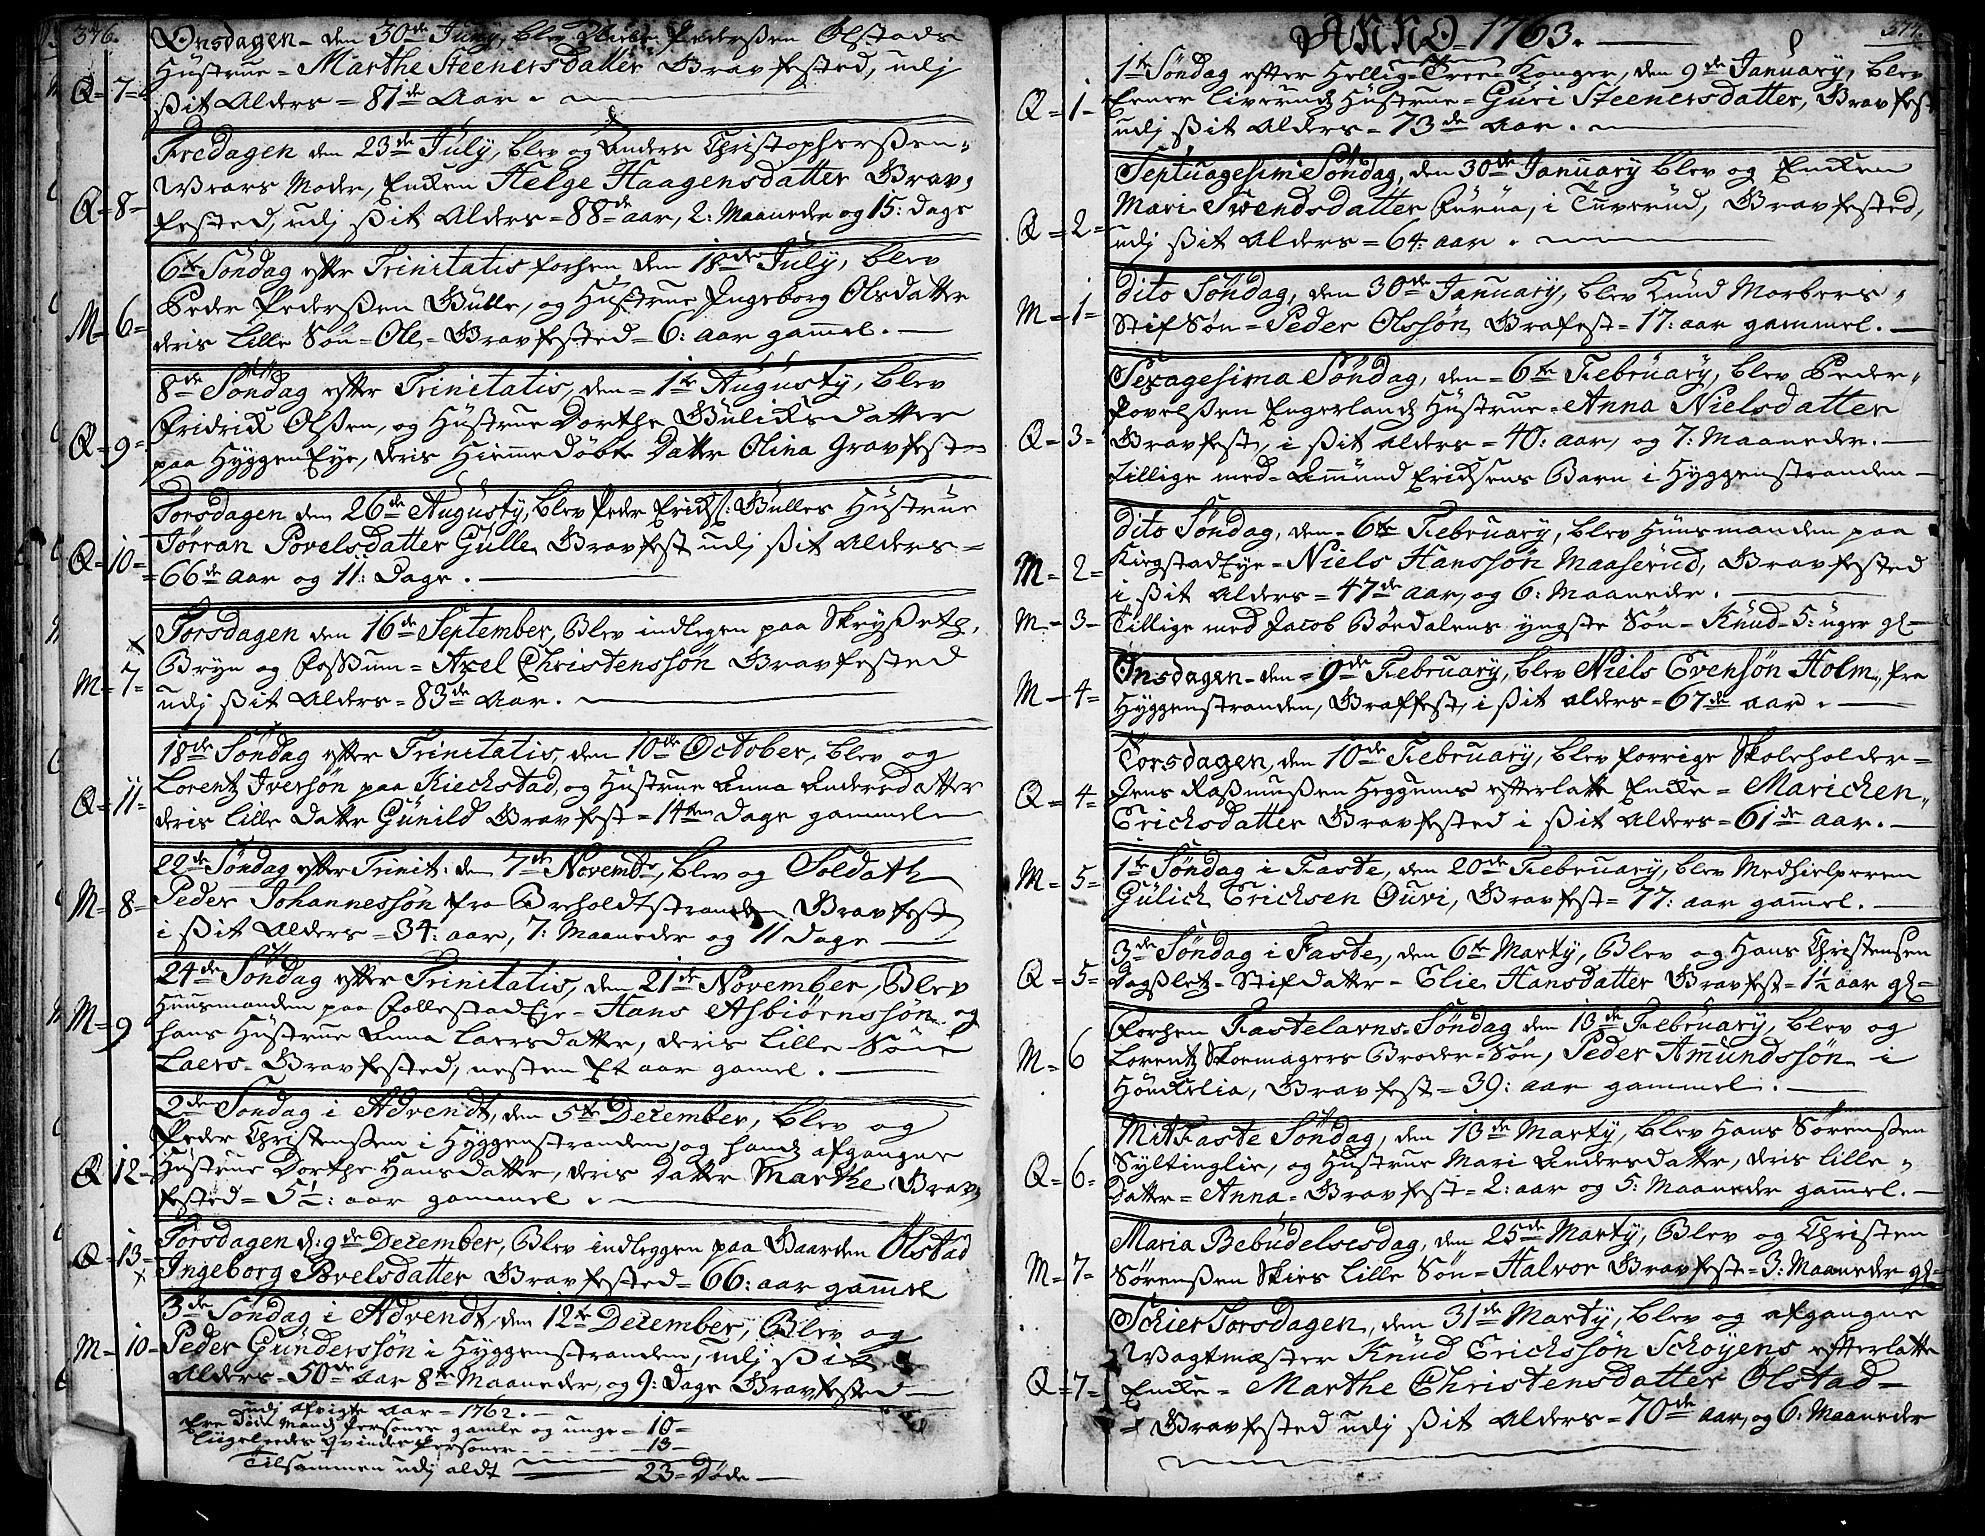 376.
Onsdagen den 30de Juny, blev Peder Pederssen Olstads
Q=7= Hustrue = Marthe Steenersdatter Gravfested, udj
sit Alders = 81de Aar.
Fredagen den 23de July, blev og Anders Christopherssen
Q=8= Moder, Encken Helge Haagensdatter Grav,
fested, udj sit Alders = 88de aar, 2: Maaneder og 15: dage
6te Søndag efter Trinitatis forhen den 18de July, blev
M=6= Peder Pederssen Gulle, og Hustrue Ingeborg Olsdatter
deris lille Søn = Ole = Gravfested = 6: aar gammel.
8de Søndag efter Trinitatis, den = 1te Augusty, blev
Q=9= Fridrick Olssen, og Hustrue Dorthe Gulicksdatter
paa HyggenEye, deris Hiemmedøbte Datter Olina Gravfest
Torsdagen den 26de Augusty, blev Peder Erichs: Gulles Hustrue
Q=10= Jørran Povelsdatter Gulle Gravfest udj sit Alders =
66de aar og 11: Dage.
Torsdagen den 16de September, Blev indlegen paa Skrysset,
M=7= Bryn og Fossum = Axel Christenssøn Gravfested
udj sit Alders = 83de Aar.
18de Søndag efter Trinitatis, den 10de October, blev og
Q=11= Lorentz Iversøn paa Kieckstad, og Hustrue Anna Andersdatter
deris lille Datter Gunild Gravfest = 14ten Dage gammel
22de Søndag efter Trinit: den 7de Novembr, blev og Soldath
M=8= Peder Johannessøn fra Greholdtstranden Gravfest
i sit Alders = 34: aar, 7: Maaneder og 11 Dage
24de Søndag efter Trinitatis, den 21de November, Blev
M=9 Huusmanden paa FollestadEje = Hans Asbiørnssøn og
hans Hustrue Anna Larsdatter, deris lille Søn
Laers = Gravfested, nesten Et aar gamel.
2den Søndag i Advendt, den 5te December, blev og
Peder Christenssen i Hyggenstranden, og hands afgangne
Q=12= Hustrue Dorthe Hansdatter, deris Datter Marthe Grav,
fested = 5½: aar gammel.
Torsdagen d: 9de December, Blev indleggen paa Gaarden Olstad
Q=13= Ingeborg Povelsdatter Gravfested = 66: aar gammel
3de Søndag i Advendt, den 12te December, Blev og
M=10= Peder Gunderssøn i Hyggenstranden, udj sit
Alders = 50de Aar 8te Maaneder, og 9: Dage Gravfested
udj afvigte Aar = 1762.
Ere døde Mands Personer gamle og unge = 10=
Liigeleedes Qvinde Personer 13=
Tilsammen udj aldt 23= Døde
ANNO = 1763.
377.
1te Søndag efter Hellig=Tree=Konger, den 9de January, blev
Q=1= Hustrue = Guri Steenersdatter, Gravfest
udj sit Alders = 73de Aar.
Septuagesima Søndag, den 30de January blev og Encken
Q=2= Mari Svendsdatter, i Tuverud, Gravfested,
udj sit Alders = 64: aar.
Dito Søndag, den 30de January, blev Knud Morbers,
M=1= Stif Søn = Peder Olssøn Grafest = 17: aar gammel.
Sexagesima Søndag, den = 6te February, blev Peder,
Povelssen Engerlands Hustrue = Anna Nielsdatter
Q=3= Gravfest, i sit alders = 40: aar, og 7: Maaneder.
Tillige med = Amund Erichsens Barn i Hyggenstranden
Dito Søndag, den = 6te February, blev Huusmanden paa
M=2= KirgstadEye = Niels Hanssøn Maaserud, Gravfested
i sit Alders = 47de aar, og 6: Maaneder.
M=3= Tillige med Jacob Børdalens yngste Søn = Knud = 5: uger gl
Onsdagen den = 9de February, blev Niels Evensøn Holm, fra
M=4= Hyggenstranden, Graffest, i sit alders = 67de aar.
Torsdagen, den 10de February, blev forrige Skoleholder =
Q=4= Jens Rasmussen Heggums efterlatte Encke = Marichen,
Erichsdatter Gravfested i sit Alders = 61de aar.
M=5= 1te Søndag i Faste, den 20de February, blev Medhielperen
Gulich Erichsen Ouri, Gravfest = 77: aar gammel.
3de Søndag i Faste, den 6te Marty, Blev og Hans Christensen
Q=5= Dagslet = Stifdatter = Elie Hansdatter Gravfest = 1½ aar gl
Forhen Fastelavns=Søndag den 13de February, blev og
M=6 Lorentz Skoemagers Broder=Søn, Peder Amundssøn i
Hønckelia, Gravfest = 39: aar gammel.
MitFaste Søndag, den 13de Marty, blev Hans Sørenssen
Q=6= Syltinglie, og Hustrue Mari Andersdatter, deris lille,
Datter = Anna = Gravfest = 2: aar og 5: Maaneder gammel.
Maria Bebudelsesdag, den 25de Marty, Blev og Christen
M=7= Sørenssen Skies lille Søn = Halvor Gravfest = 3: Maaneder gl
SchierTorsdagen, den 31de Marty, blev og afgangne
Wagtmæster Knud Erichssøn Schøyens efterlatte
Q=7= Encke = Marthe Christensdatter Olstad
= Gravfested udj sit Alders = 70de aar, og 6: Maaneder